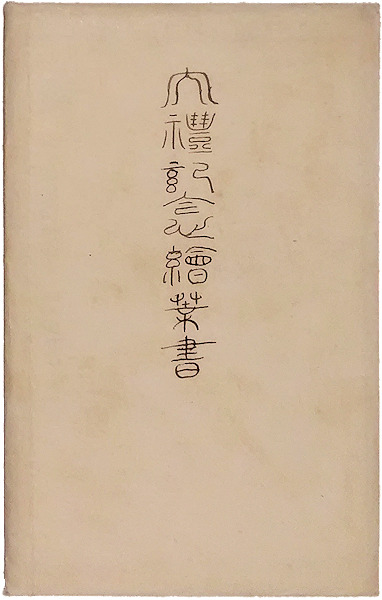 大禮記念繪葉書